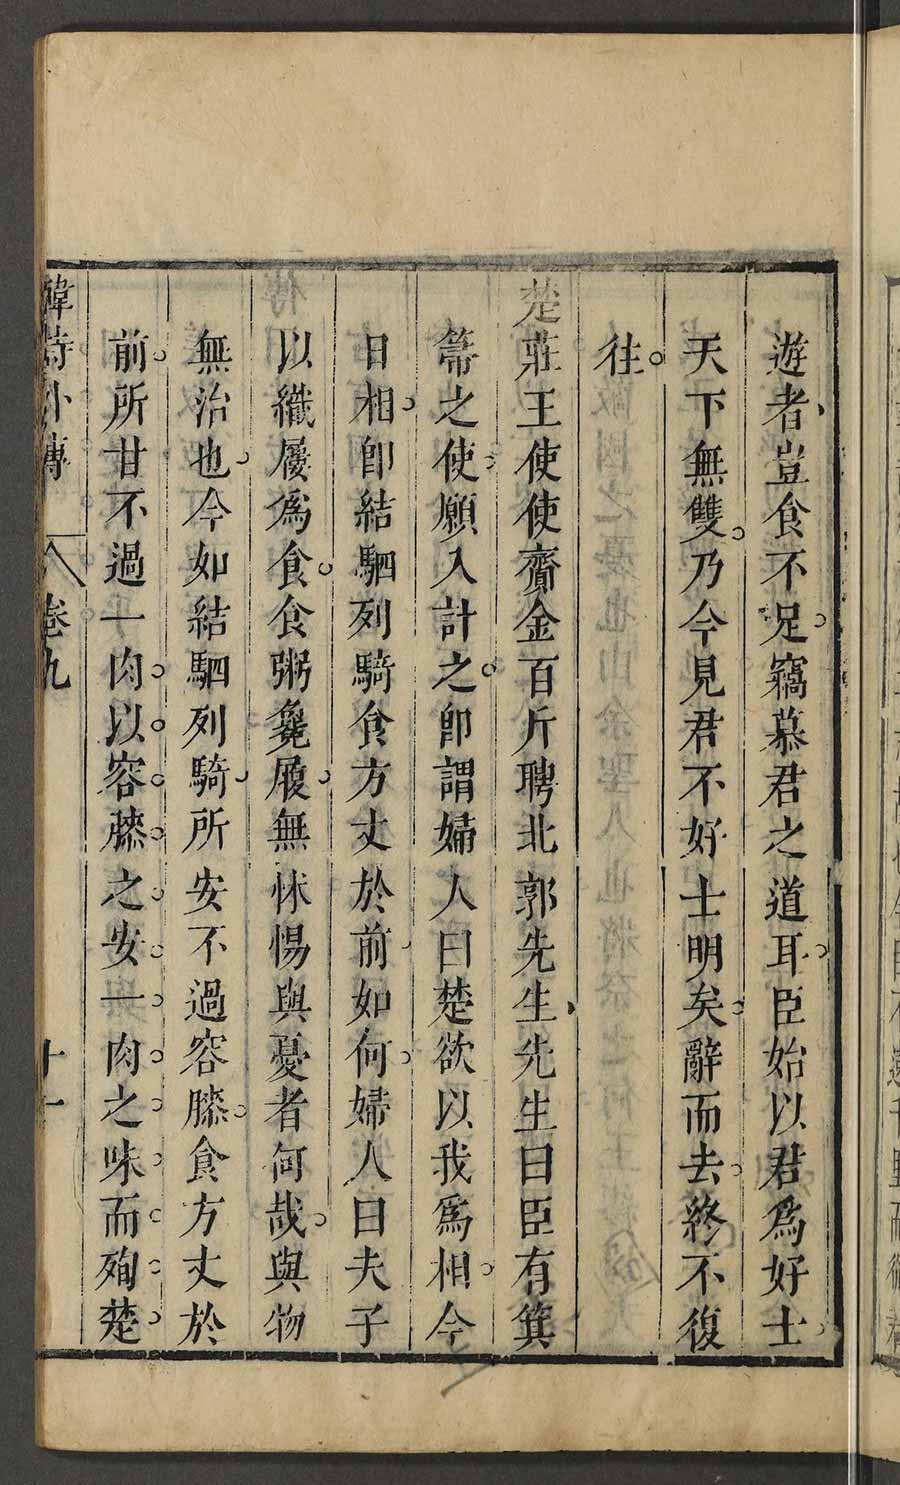 遊者豈食不足竊慕君之道耳臣始以君爲好士
天下無雙乃今見君不好士明矣辭而去終不復
往
楚莊王使使齎金百斤聘北郭先生先生曰臣有箕
箒之使願入計之卽謂婦人曰楚欲以我爲相今
日相卽結駟列騎食方丈於前如何婦人曰夫子
以織屨爲食食粥毚履無怵惕與憂者何哉與物
無治也今如結駟列騎所安不過容膝食方丈於
前所甘不過一肉以容膝之安一肉之味而殉楚
韓詩外傳 卷九 十一